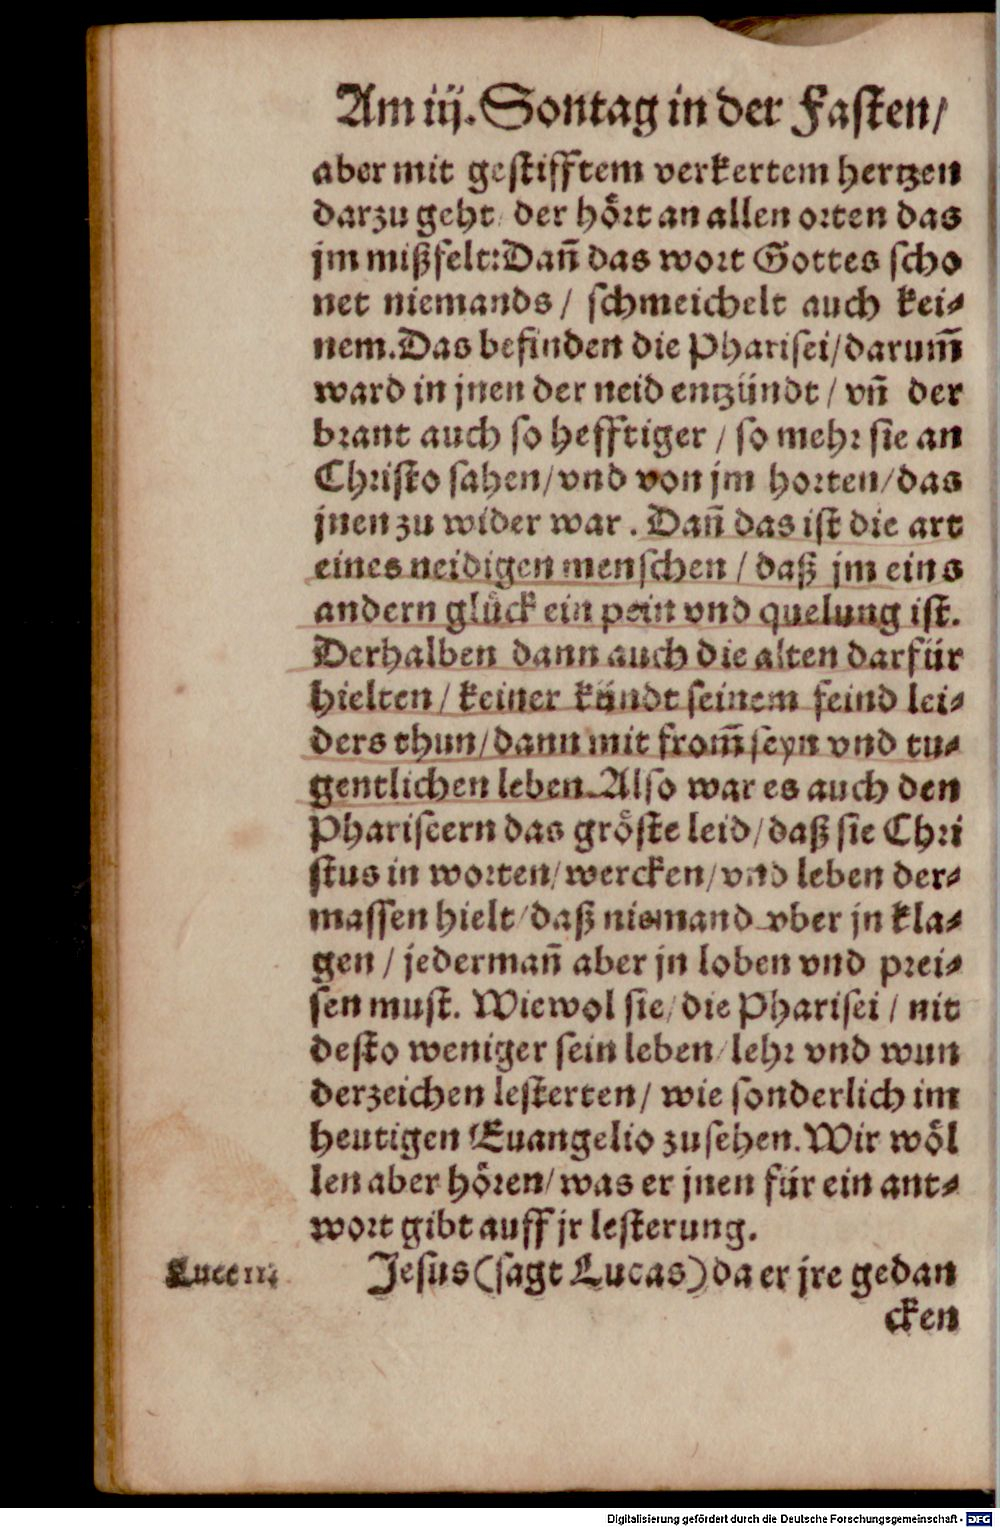 Am iij. Sontag in der Fasten/
aber mit gestifftem verkertem hertzen
darzu geht/ der hoͤrt an allen orten das
jm mißfelt: Dañ das wort Gottes scho
net niemands / schmeichelt auch kei⸗
nem. Das befinden die Pharisei/darum̃
ward in jnen der neid entzündt / vñ der
brant auch so hefftiger / so mehr sie an
Christo sahen/vnd von jm horten/das
jnen zu wider war. Dañ das ist die art
eines neidigen menschen / daß jm eins
andern gluͤck ein pein vnd quelung ist.
Derhalben dann auch die alten darfür
hielten / keiner kündt seinem feind lei⸗
ders thun/dann mit from̃ seyn vnd tu⸗
gentlichen leben. Also war es auch den
Phariseern das groͤste leid/daß sie Chri
stus in worten/wercken/vnd leben der⸗
massen hielt/daß niemand vber jn kla⸗
gen / jedermañ aber jn loben vnd prei⸗
sen must. Wiewol sie/die Pharisei / nit
desto weniger sein leben/lehr vnd wun
derzeichen lesterten/ wie sonderlich im
heutigen Euangelio zusehen. Wir woͤl
len aber hoͤren/was er jnen für ein ant⸗
wort gibt auff jr lesterung.
Luce 11.
Jesus (sagt Lucas) da er jre gedan
cken
Digitalisierung gefördert durch die Deutsche Forschungsgemeinschaft - DFG